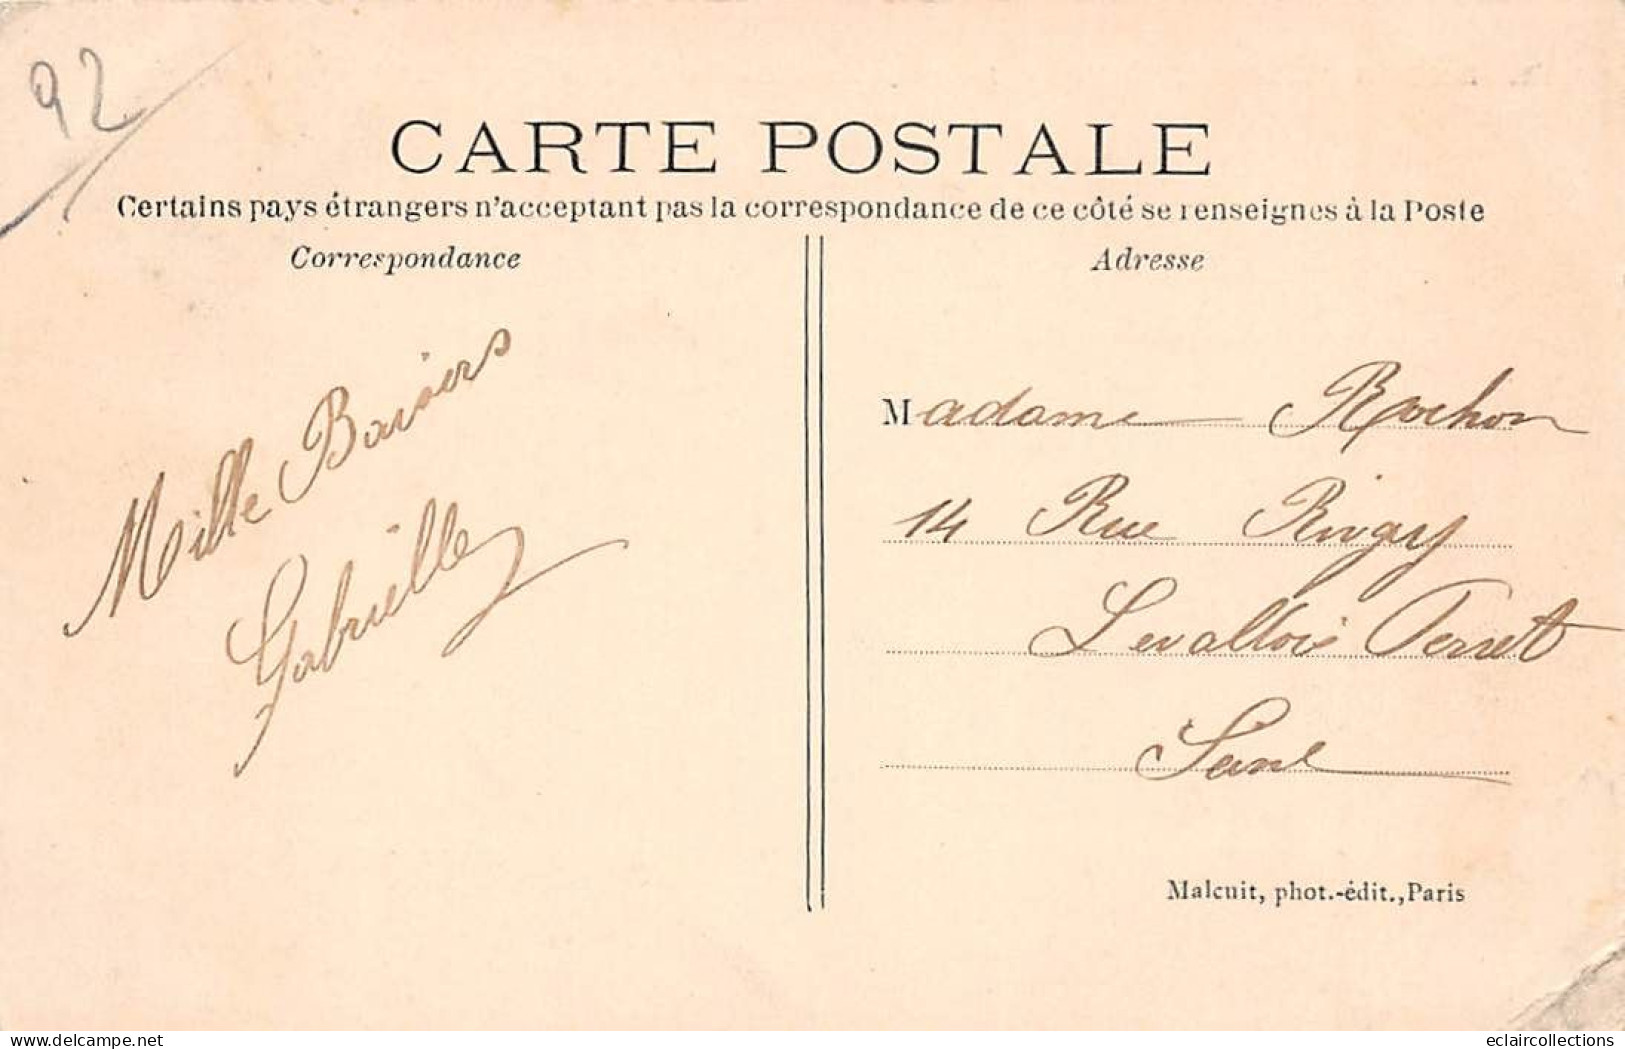 92
CARTE POSTALE
Certains pays étrangers n'acceptant pas la correspondance de ce côté se renseignes à la Poste
Correspondance
Adresse
Mille Baisers
Gabrielle
Madame Rochon
14 Rue Rivay
Levallois Perret
Seine
Malcuit, phot.-édit., Paris
delcampe.net
eclaircollections